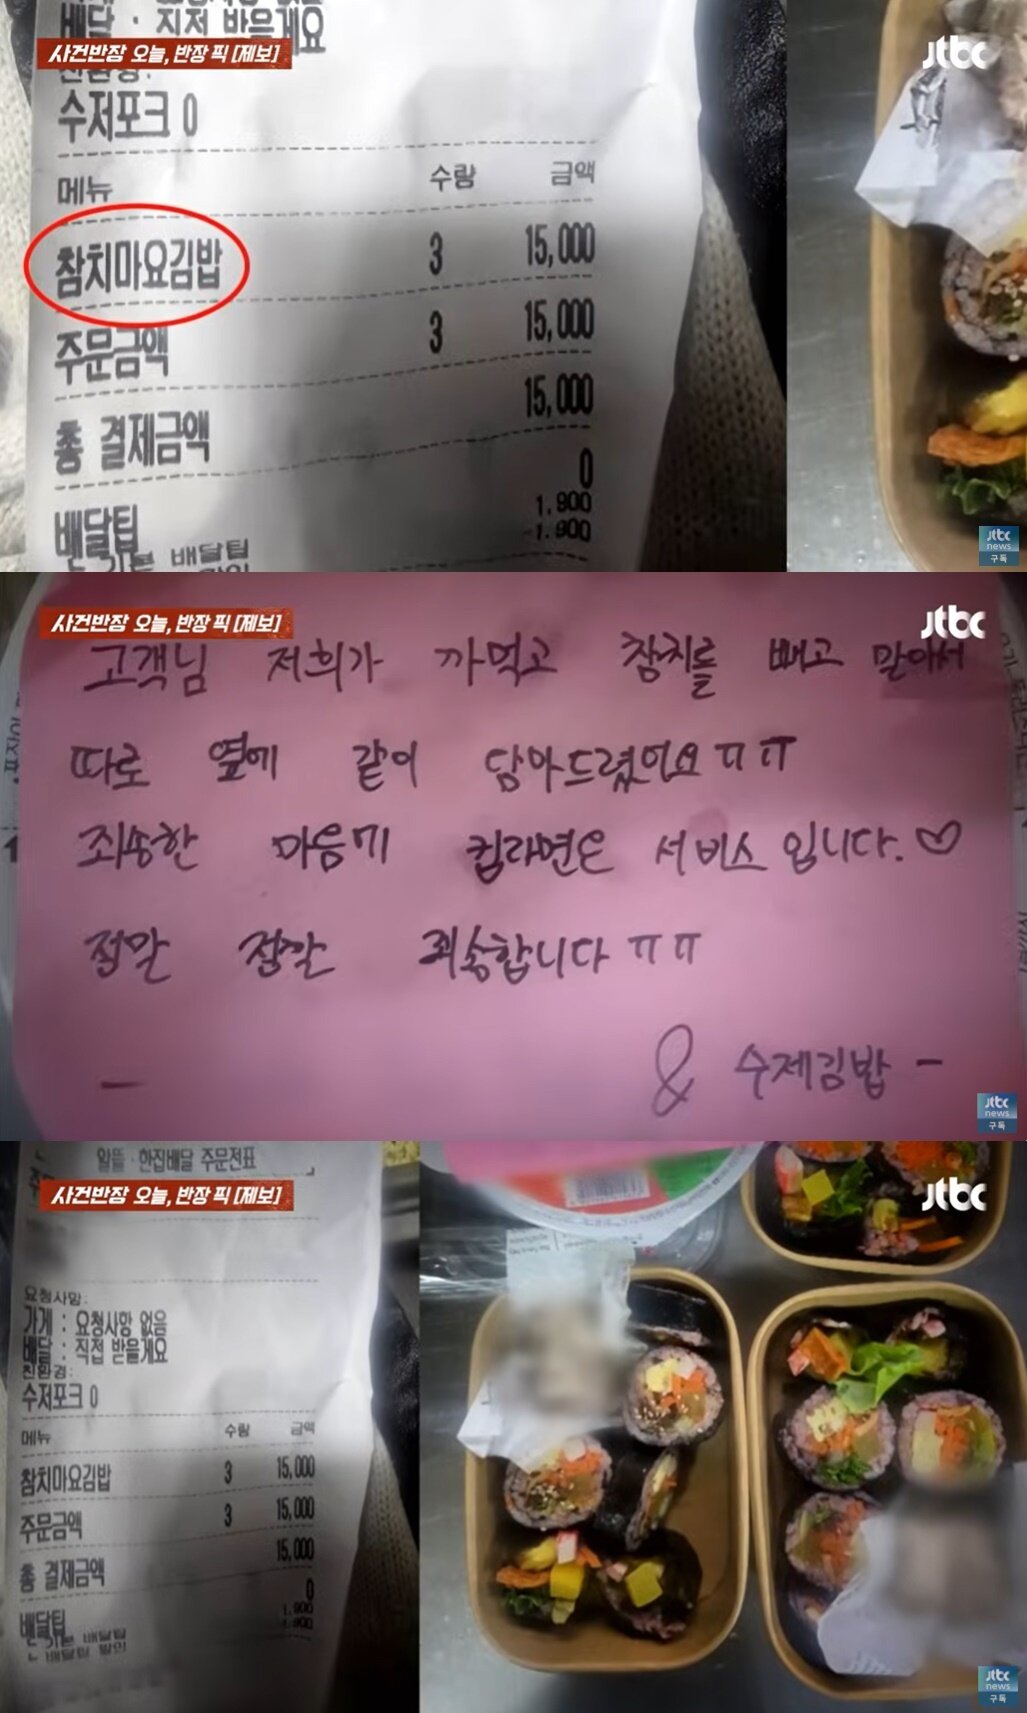 배달 : 직접 받을게요
사건반장 오늘, 반장 픽 [제보]
jtbc
친환경:
수저포크 0
메뉴 수량 금액
참치마요김밥 3 15,000
주문금액 3 15,000
총 결제금액 15,000
배달팁 0
기본 배달팁 1,900
-1,900
jtbc
news
구독
사건반장 오늘, 반장 픽 [제보]
jtbc
고객님 저희가 까먹고 참치를 빼고 말아서
따로 옆에 같이 담아드렸어요 ㅠㅠ
죄송한 마음에 컵라면은 서비스 입니다. ♡
정말 정말 죄송합니다 ㅠㅠ
- & 수제김밥 -
jtbc
news
구독
알뜰·한집배달 주문전표
사건반장 오늘, 반장 픽 [제보]
jtbc
요청사항:
가게 : 요청사항 없음
배달 : 직접 받을게요
친환경:
수저포크 0
메뉴 수량 금액
참치마요김밥 3 15,000
주문금액 3 15,000
총 결제금액 15,000
배달팁 0
기본 배달팁 1,900
배달팁 할인 -1,900
jtbc
news
구독